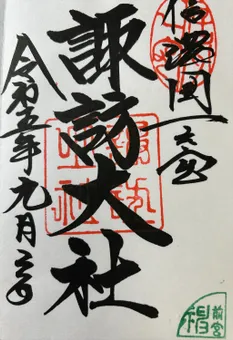 信濃國一之宮
諏訪大社
令和五年九月二日
前宮